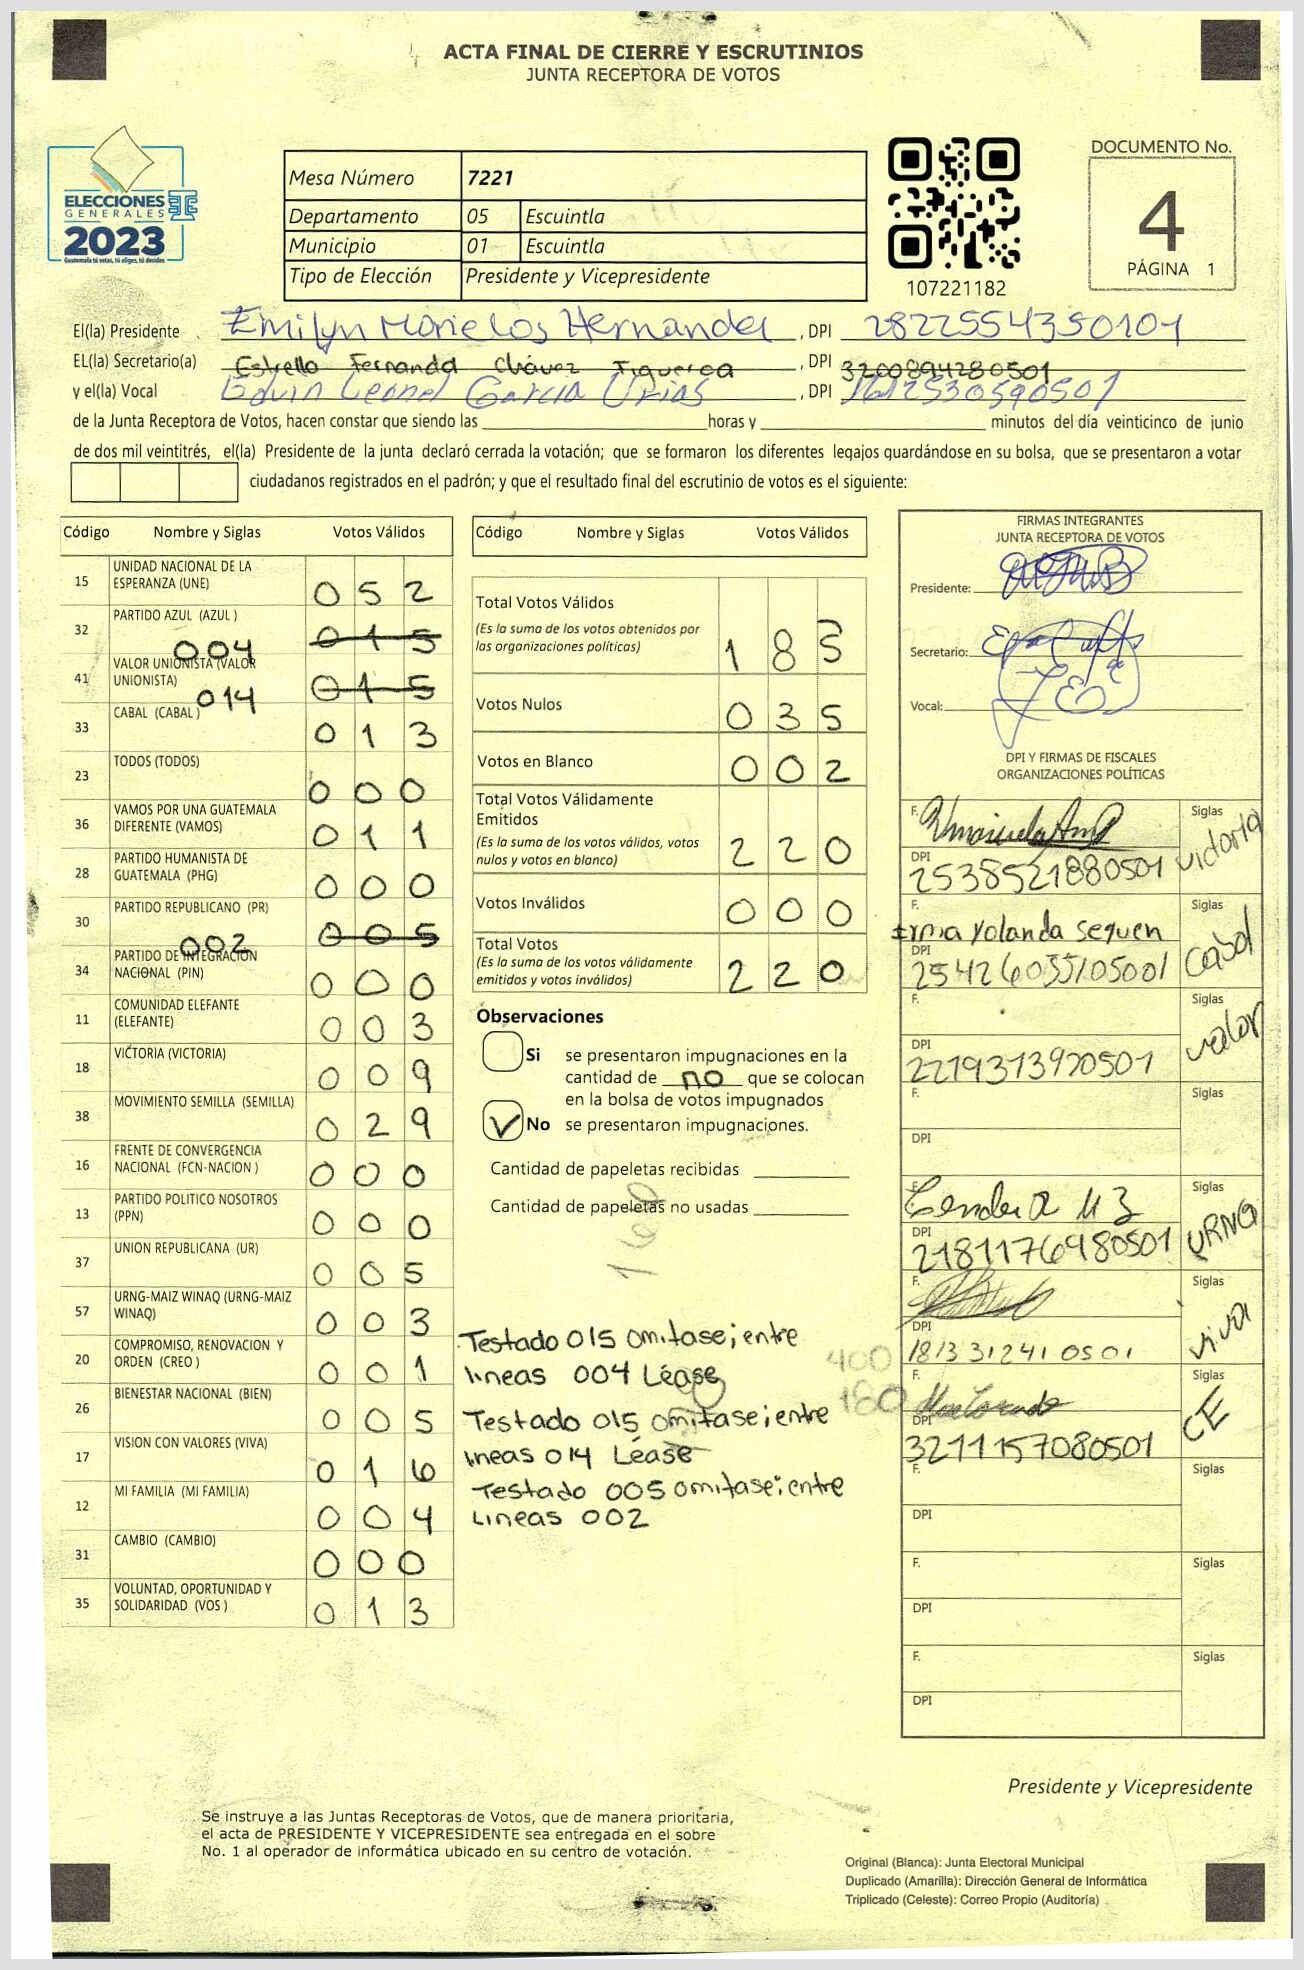 ACTA FINAL DE CIERRE Y ESCRUTINIOS
JUNTA RECEPTORA DE VOTOS
ELECCIONES
GENERALES
2023
Guatemala tú votas, tú eliges, tú decides
Mesa Número 7221
Departamento 05 Escuintla
Municipio 01 Escuintla
Tipo de Elección Presidente y Vicepresidente
107221182
DOCUMENTO No.
4
PÁGINA 1
El(la) Presidente Emilyn Marielos Hernandez, DPI 2822554350101
EL(la) Secretario(a) Estrella Fernanda Chávez Figueroa, DPI 3200894280501
y el(la) Vocal Edvin Leonel Garcia Urias, DPI 1612530590501
de la Junta Receptora de Votos, hacen constar que siendo las horas y minutos del día veinticinco de junio
de dos mil veintitrés, el(la) Presidente de la junta declaró cerrada la votación; que se formaron los diferentes legajos guardándose en su bolsa, que se presentaron a votar
ciudadanos registrados en el padrón; y que el resultado final del escrutinio de votos es el siguiente:
Código Nombre y Siglas Votos Válidos
15 UNIDAD NACIONAL DE LA ESPERANZA (UNE) 052
32 PARTIDO AZUL (AZUL ) 004 015
41 VALOR UNIONISTA (VALOR UNIONISTA) 014 015
33 CABAL (CABAL ) 013
23 TODOS (TODOS) 000
36 VAMOS POR UNA GUATEMALA DIFERENTE (VAMOS) 011
28 PARTIDO HUMANISTA DE GUATEMALA (PHG) 000
30 PARTIDO REPUBLICANO (PR) 002 005
34 PARTIDO DE INTEGRACION NACIONAL (PIN) 000
11 COMUNIDAD ELEFANTE (ELEFANTE) 003
18 VICTORIA (VICTORIA) 009
38 MOVIMIENTO SEMILLA (SEMILLA) 029
16 FRENTE DE CONVERGENCIA NACIONAL (FCN-NACION ) 000
13 PARTIDO POLITICO NOSOTROS (PPN) 000
37 UNION REPUBLICANA (UR) 005
57 URNG-MAIZ WINAQ (URNG-MAIZ WINAQ) 003
20 COMPROMISO, RENOVACION Y ORDEN (CREO ) 001
26 BIENESTAR NACIONAL (BIEN) 005
17 VISION CON VALORES (VIVA) 016
12 MI FAMILIA (MI FAMILIA) 004
31 CAMBIO (CAMBIO) 000
35 VOLUNTAD, OPORTUNIDAD Y SOLIDARIDAD (VOS ) 013
Código Nombre y Siglas Votos Válidos
Total Votos Válidos 183
(Es la suma de los votos obtenidos por
las organizaciones políticas)
Votos Nulos 035
Votos en Blanco 002
Total Votos Válidamente
Emitidos 220
(Es la suma de los votos válidos, votos
nulos y votos en blanco)
Votos Inválidos 000
Total Votos 220
(Es la suma de los votos válidamente
emitidos y votos inválidos)
Observaciones
Si se presentaron impugnaciones en la
cantidad de no que se colocan
en la bolsa de votos impugnados
No se presentaron impugnaciones.
Cantidad de papeletas recibidas
Cantidad de papeletas no usadas
Testado 015 omitase; entre
lineas 004 Léase
Testado 015 omitase; entre
lineas 014 Léase
Testado 005 omitase; entre
Lineas 002
400
180
FIRMAS INTEGRANTES
JUNTA RECEPTORA DE VOTOS
Presidente:
Secretario:
Vocal:
DPI Y FIRMAS DE FISCALES
ORGANIZACIONES POLÍTICAS
F. Siglas victoria
DPI 2538521880501
F. Irma Yolanda Sequen Siglas cabal
DPI
F. Siglas valor
DPI 2219313920501
F. Siglas
DPI
F. Siglas URNG
DPI 2181176980501
F. Siglas viva
DPI 1813312410501
F. Siglas CE
DPI 3211157080501
F. Siglas
DPI
F. Siglas
DPI
F. Siglas
DPI
Presidente y Vicepresidente
Se instruye a las Juntas Receptoras de Votos, que de manera prioritaria,
el acta de PRESIDENTE Y VICEPRESIDENTE sea entregada en el sobre
No. 1 al operador de informática ubicado en su centro de votación.
Original (Blanca): Junta Electoral Municipal
Duplicado (Amarilla): Dirección General de Informática
Triplicado (Celeste): Correo Propio (Auditoría)